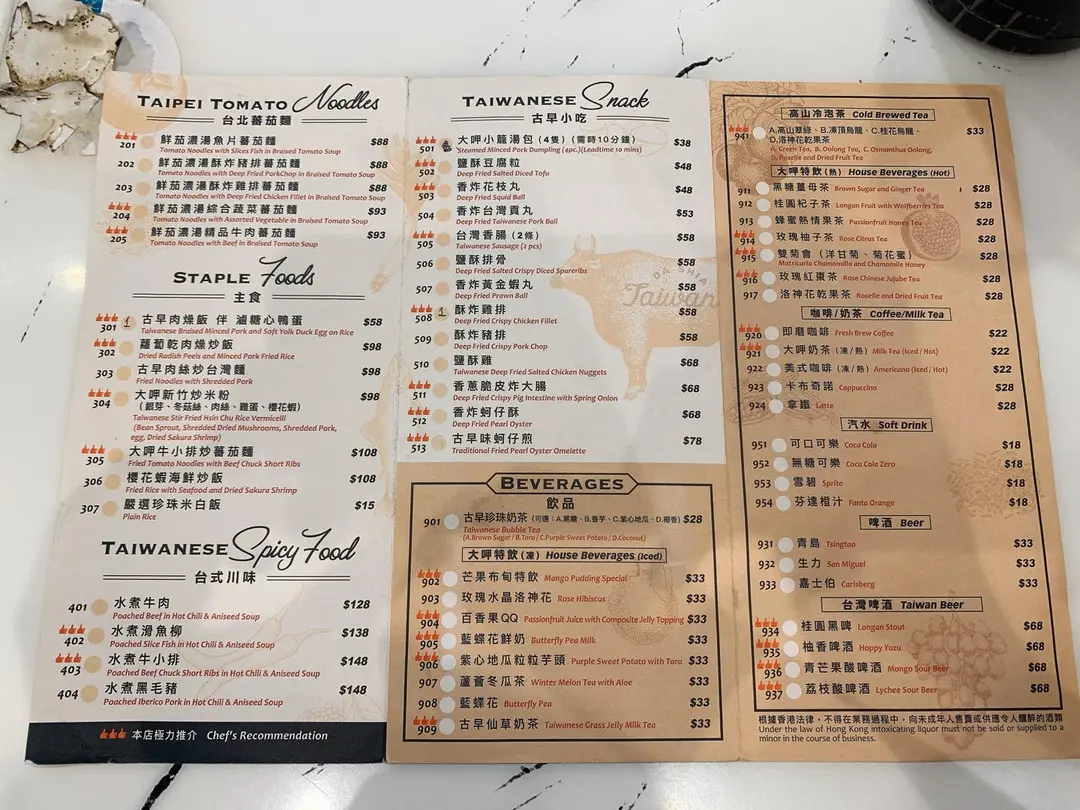 TAIPEI TOMATO Noodles
台北蕃茄麵
201 鮮茄濃湯魚片蕃茄麵 $88
Tomato Noodles with Slices Fish in Braised Tomato Soup
202 鮮茄濃湯酥炸豬排蕃茄麵 $88
Tomato Noodles with Deep Fried PorkChop in Braised Tomato Soup
203 鮮茄濃湯酥炸雞排蕃茄麵 $88
Tomato Noodles with Deep Fried Chicken Fillet in Braised Tomato Soup
204 鮮茄濃湯綜合蔬菜蕃茄麵 $93
Tomato Noodles with Assorted Vegetable in Braised Tomato Soup
205 鮮茄濃湯精品牛肉蕃茄麵 $93
Tomato Noodles with Beef in Braised Tomato Soup
STAPLE Foods
主食
301 1 古早肉燥飯 伴 滷糖心鴨蛋 $58
Taiwanese Braised Minced Pork and Soft Yolk Duck Egg on Rice
302 蘿蔔乾肉燥炒飯 $98
Dried Radish Peels and Minced Pork Fried Rice
303 古早肉絲炒台灣麵 $98
Fried Noodles with Shredded Pork
304 大呷新竹炒米粉 $98
（銀芽、冬菇絲、肉絲、雞蛋、櫻花蝦）
Taiwanese Stir Fried Hsin Chu Rice Vermicelli
(Bean Sprout, Shredded Dried Mushrooms, Shredded Pork,
egg, Dried Sakura Shrimp)
305 大呷牛小排炒蕃茄麵 $108
Fried Tomato Noodles with Beef Chuck Short Ribs
306 櫻花蝦海鮮炒飯 $108
Fried Rice with Seafood and Dried Sakura Shrimp
307 嚴選珍珠米白飯 $15
Plain Rice
TAIWANESE Spicy Food
台式川味
401 水煮牛肉 $128
Poached Beef in Hot Chili & Aniseed Soup
402 水煮滑魚柳 $138
Poached Slice Fish in Hot Chili & Aniseed Soup
403 水煮牛小排 $148
Poached Beef Chuck Short Ribs in Hot Chili & Aniseed Soup
404 水煮黑毛豬 $148
Poached Iberico Pork in Hot Chili & Aniseed Soup
本店極力推介 Chef's Recommendation
TAIWANESE Snack
古早小吃
501 大呷小籠湯包（4隻）（需時10分鐘） $38
Steamed Minced Pork Dumpling (4pc.)(Leadtime 10 mins)
502 鹽酥豆腐粒 $48
Deep Fried Salted Diced Tofu
503 香炸花枝丸 $48
Deep Fried Squid Ball
504 香炸台灣貢丸 $53
Deep Fried Taiwanese Pork Ball
505 台灣香腸（2條） $58
Taiwanese Sausage (2 pcs)
506 鹽酥排骨 $58
Deep Fried Salted Crispy Diced Spareribs
507 香炸黃金蝦丸 $58
Deep Fried Prawn Ball
508 1 酥炸雞排 $58
Deep Fried Crispy Chicken Fillet
509 酥炸豬排 $58
Deep Fried Crispy Pork Chop
510 鹽酥雞 $68
Taiwanese Deep Fried Salted Chicken Nuggets
511 香蔥脆皮炸大腸 $68
Deep Fried Crispy Pig Intestine with Spring Onion
512 香炸蚵仔酥 $68
Deep Fried Pearl Oyster
513 古早味蚵仔煎 $78
Traditional Fried Pearl Oyster Omelette
DA SHIA
Taiwan
BEVERAGES
飲品
901 古早珍珠奶茶（可選：A.黑糖、B.香芋、C.紫心地瓜、D.椰香） $28
Taiwanese Bubble Tea
(A.Brown Sugar / B.Taro / C.Purple Sweet Potato / D.Coconut)
大呷特飲（凍）House Beverages (Iced)
902 芒果布甸特飲 Mango Pudding Special $33
903 玫瑰水晶洛神花 Rose Hibiscus $33
904 百香果QQ Passionfruit Juice with Composite Jelly Topping $33
905 藍蝶花鮮奶 Butterfly Pea Milk $33
906 紫心地瓜粒粒芋頭 Purple Sweet Potato with Taro $33
907 蘆薈冬瓜茶 Winter Melon Tea with Aloe $33
908 藍蝶花 Butterfly Pea $33
909 古早仙草奶茶 Taiwanese Grass Jelly Milk Tea $33
高山冷泡茶 Cold Brewed Tea
941 A.高山翠綠、B.凍頂烏龍、C.桂花烏龍、 $33
D.洛神花乾果茶
A. Green Tea, B. Oolong Tea, C. Osmanthus Oolong,
D. Roselle and Dried Fruit Tea
大呷特飲（熱）House Beverages (Hot)
911 黑糖薑母茶 Brown Sugar and Ginger Tea $28
912 桂圓杞子茶 Longan Fruit with Wolfberries Tea $28
913 蜂蜜熱情果茶 Passionfruit Honey Tea $28
914 玫瑰柚子茶 Rose Citrus Tea $28
915 雙菊會（洋甘菊、菊花蜜） $28
Matricaria Chamomilla and Chamomile Honey
916 玫瑰紅棗茶 Rose Chinese Jujube Tea $28
917 洛神花乾果茶 Roselle and Dried Fruit Tea $28
咖啡/奶茶 Coffee/Milk Tea
920 即磨咖啡 Fresh Brew Coffee $22
921 大呷奶茶（凍/熱）Milk Tea (Iced / Hot) $22
922 美式咖啡（凍/熱）Americano (Iced / Hot) $22
923 卡布奇諾 Cappuccino $28
924 拿鐵 Latte $28
汽水 Soft Drink
951 可口可樂 Coca Cola $18
952 無糖可樂 Coca Cola Zero $18
953 雪碧 Sprite $18
954 芬達橙汁 Fanta Orange $18
啤酒 Beer
931 青島 Tsingtao $33
932 生力 San Miguel $33
933 嘉士伯 Carlsberg $33
台灣啤酒 Taiwan Beer
934 桂圓黑啤 Longan Stout $68
935 柚香啤酒 Hoppy Yuzu $68
936 青芒果酸啤酒 Mango Sour Beer $68
937 荔枝酸啤酒 Lychee Sour Beer $68
根據香港法律，不得在業務過程中，向未成年人售賣或供應令人醺醉的酒類
Under the law of Hong Kong intoxicating liquor must not be sold or supplied to a
minor in the course of business.